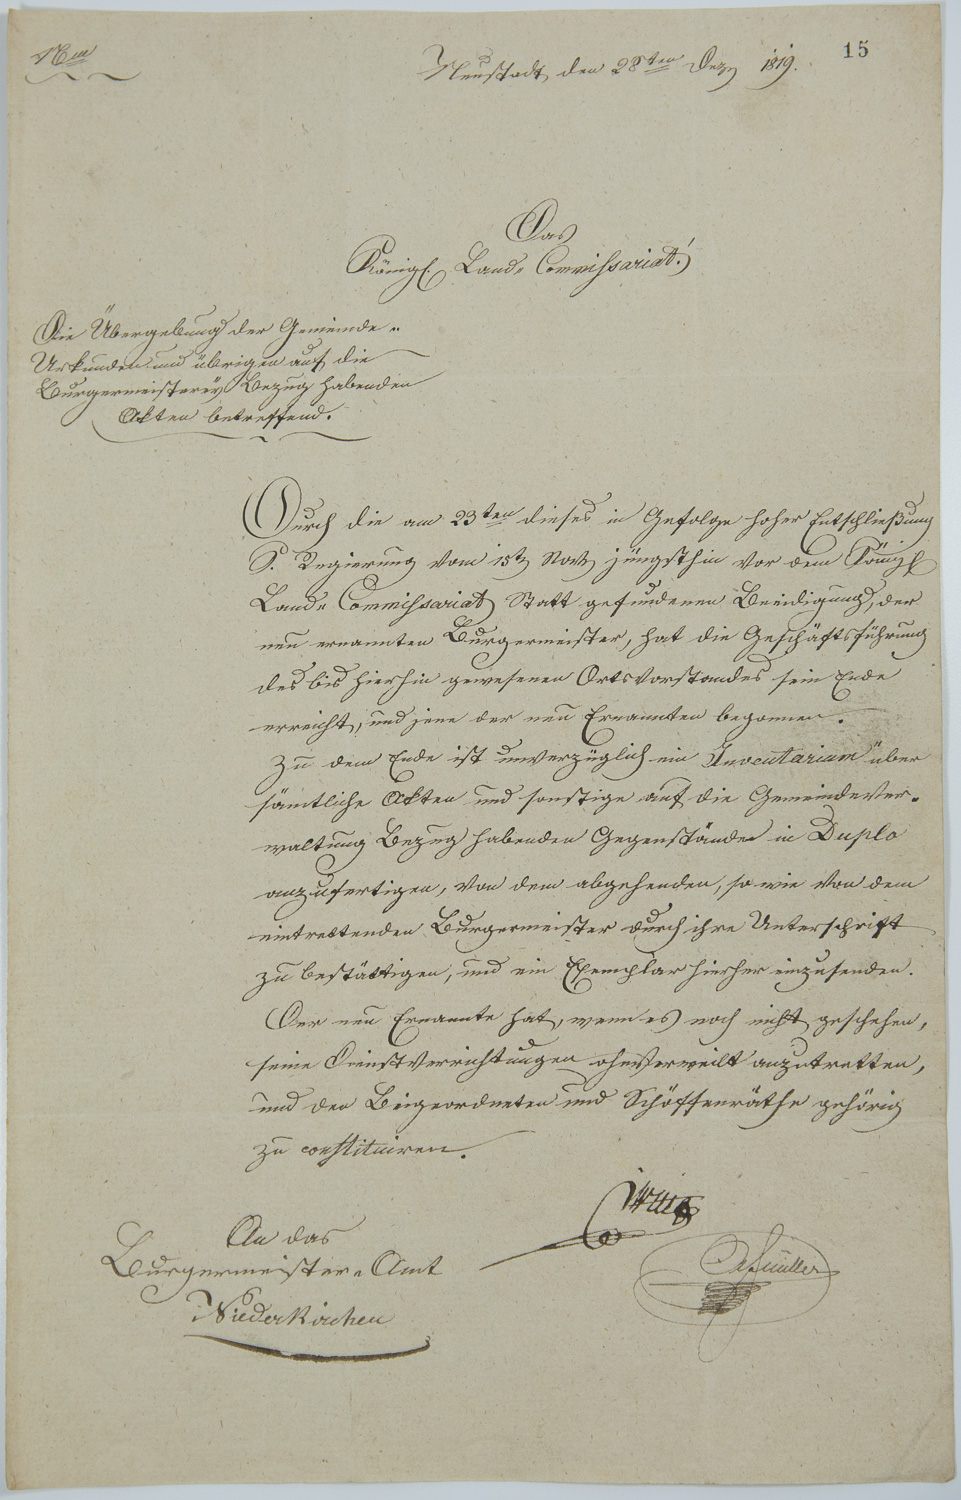 15
Neustadt, den 28ten Dez. 1819.
Das
Königl. Land-Commissariat!
Die Übergebung der Gemeinde-
Urkunden und übrigen auf die
Burgermeisterey Bezug habenden
Akten betreffend.
Durch die am 23ten dieses in Gefolge hoher Entschließung
K. Regierung vom 15t Nov. jüngsthin vor dem Königl
Land-Commissariat Statt gefundenen Beeidigung, der
neu ernannten Burgermeister, hat die Geschäftsführung
des bis hierhin gewesenen Ortsvorstandes sein Ende
erreicht, und jene der neu Ernannten begonnen.
Zu dem Ende ist unverzüglich ein Inventarium über
sämtliche Akten und sonstige auf die Gemeindever-
waltung Bezug habenden Gegenstände in Duplo
anzufertigen, von dem abgehenden, so wie von dem
eintrettenden Burgermeister durch ihre Unterschrift
zu bestättigen, und ein Exemplar hierher einzusenden.
Der neu Ernannte hat, wenn es noch nicht geschehen,
seine Dienstverrichtungen ohnverweilt anzutretten,
und den Beigeordneten und Schöffenräthe gehörig
zu constituiren.
An das
Burgermeister-Amt
Niederkirchen